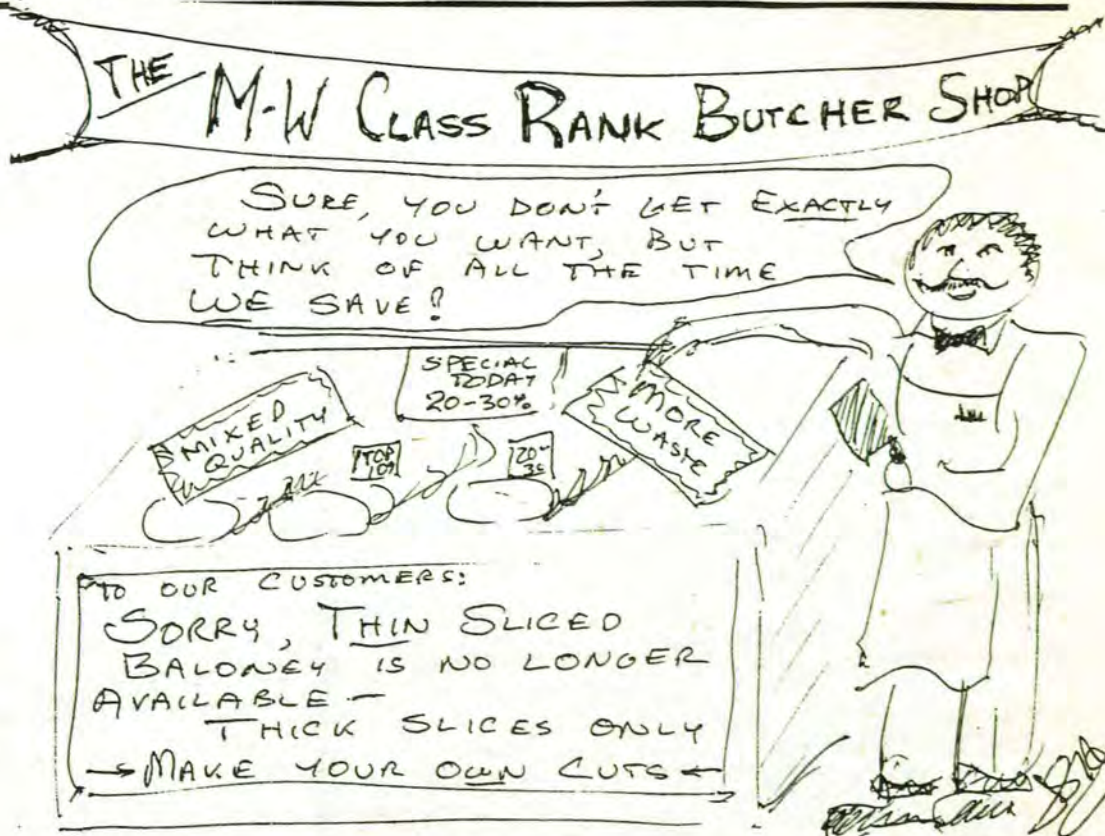 THE M-W CLASS RANK BUTCHER SHOP
SURE, YOU DON'T GET EXACTLY
WHAT YOU WANT, BUT
THINK OF ALL THE TIME
WE SAVE!
SPECIAL
TODAY
20-30%
MIXED
QUALITY
MORE
WASTE
TOP
20-
TO OUR CUSTOMERS:
SORRY, THIN SLICED
BALONEY IS NO LONGER
AVAILABLE -
THICK SLICES ONLY
→ MAKE YOUR OWN CUTS ←